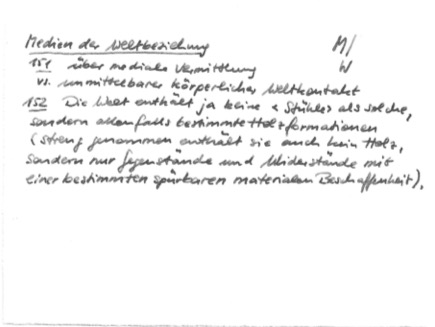 Medien der Weltbeziehung M/
151 über mediale Vermittlung W
vs. unmittelbarer körperlicher Weltkontakt
152 Die Welt enthält ja keine «Stühle» als solche,
sondern allenfalls bestimmte Holzformationen
(streng genommen enthält sie auch kein Holz,
sondern nur Gegenstände und Widerstände mit
einer bestimmten spürbaren materialen Beschaffenheit).